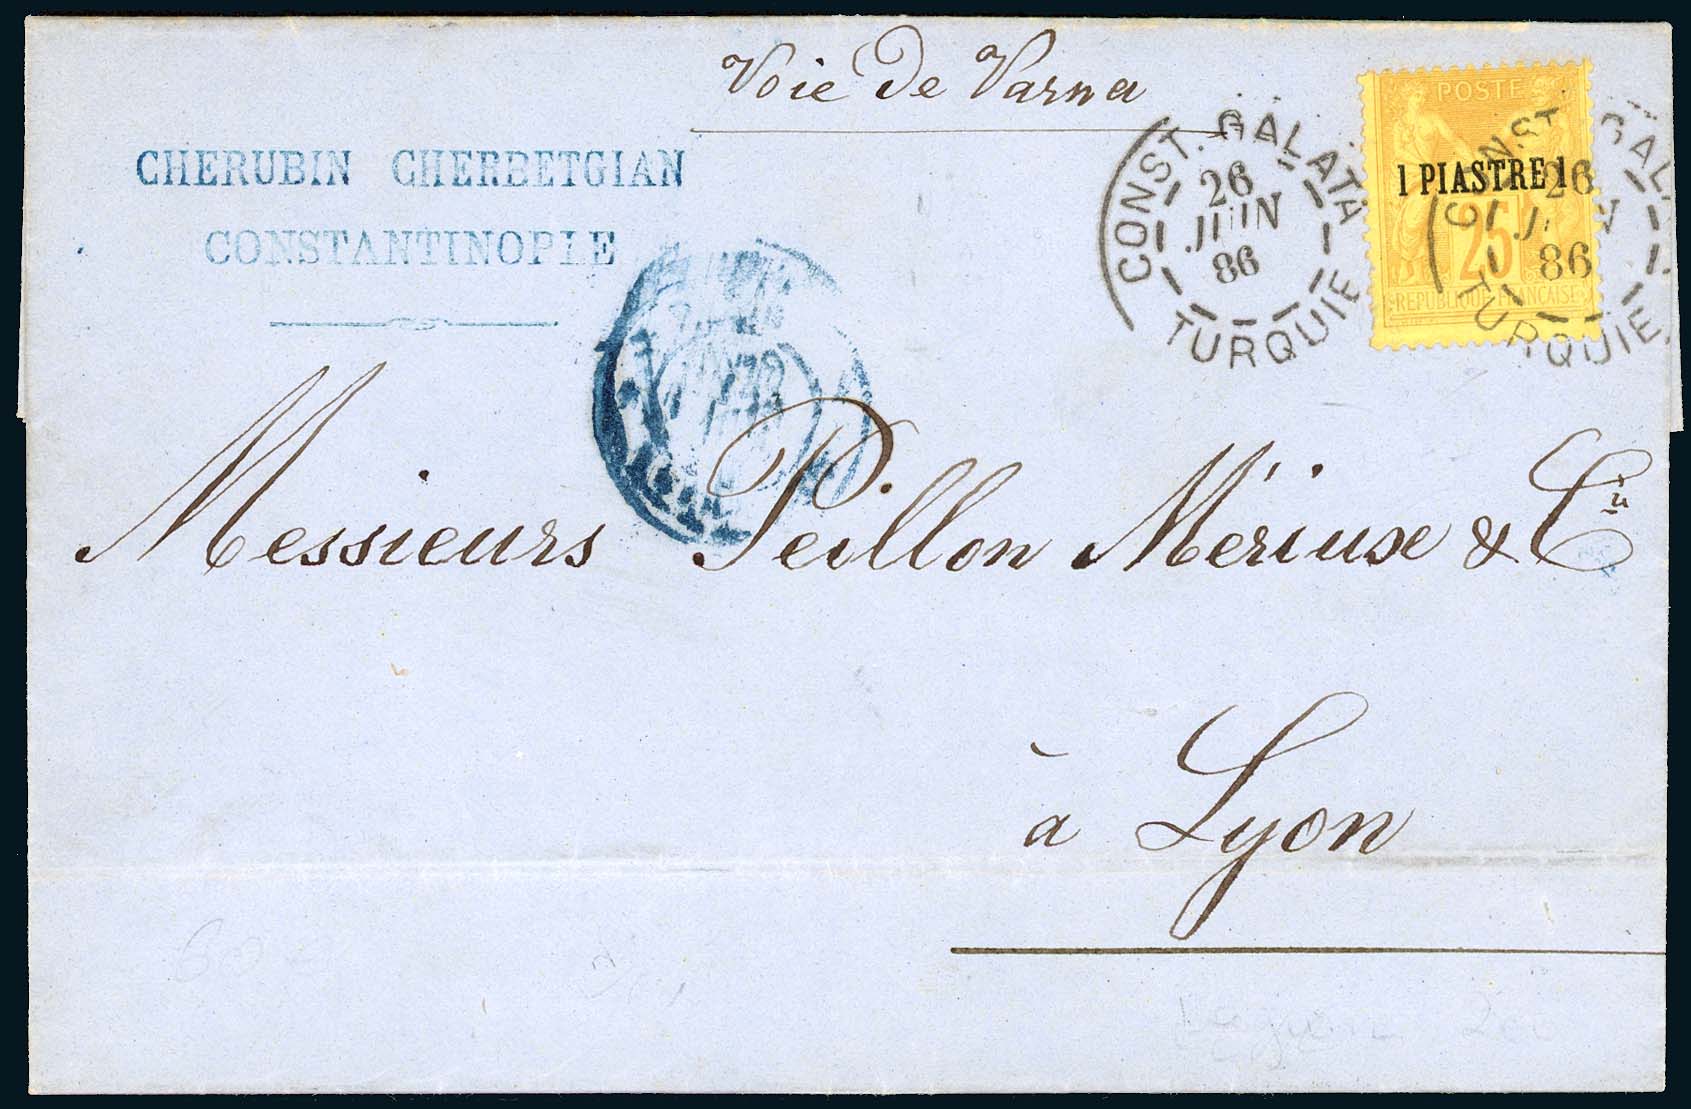 Voie de Varna
CHERUBIN CHERBETGIAN
CONSTANTINOPLE
CONST. GALATA
26
JUIN
86
TURQUIE
POSTE
1 PIASTRE 1
25
REPUBLIQUE FRANCAISE
CONST. GAL
26
86
TURQUIE
Messieurs Peillon Mériux & Cie
à Lyon